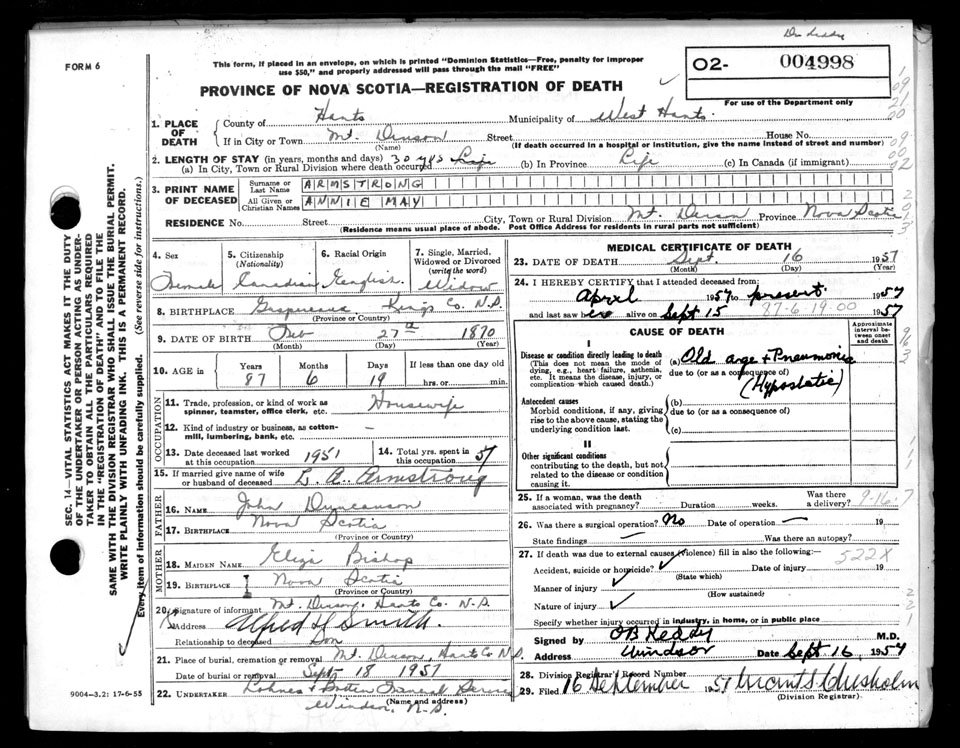 Dr Reddy
FORM 6
This form, if placed in an envelope, on which is printed "Dominion Statistics—Free, penalty for improper
use $50," and properly addressed will pass through the mail "FREE"
O2- 004998
PROVINCE OF NOVA SCOTIA—REGISTRATION OF DEATH
For use of the Department only
1. PLACE OF DEATH
County of Hants Municipality of West Hants.
If in City or Town Mt. Denson (Name) Street House No.
(If death occurred in a hospital or institution, give the name instead of street and number)
2. LENGTH OF STAY (in years, months and days)
(a) In City, Town or Rural Division where death occurred 30 yrs Life (b) In Province Life (c) In Canada (if immigrant)
3. PRINT NAME OF DECEASED
Surname or Last Name ARMSTRONG
All Given or Christian Names ANNIE MAY
RESIDENCE No. Street City, Town or Rural Division Mt. Denson Province Nova Scotia
(Residence means usual place of abode. Post Office Address for residents in rural parts not sufficient)
4. Sex Female
5. Citizenship (Nationality) Canadian
6. Racial Origin English
7. Single, Married, Widowed or Divorced (write the word) Widow
8. BIRTHPLACE Gaspereau Kings Co. N.S.
(Province or Country)
9. DATE OF BIRTH Feb 27th 1870
(Month) (Day) (Year)
10. AGE in Years 87 Months 6 Days 19 If less than one day old hrs. or min.
OCCUPATION
11. Trade, profession, or kind of work as spinner, teamster, office clerk, etc. Housewife
12. Kind of industry or business, as cotton-mill, lumbering, bank, etc. —
13. Date deceased last worked at this occupation 1951
14. Total yrs. spent in this occupation 57
15. If married give name of wife or husband of deceased L. A. Armstrong
FATHER
16. NAME John Duncanson
17. BIRTHPLACE Nova Scotia
(Province or Country)
MOTHER
18. MAIDEN NAME Eliza Bishop
19. BIRTHPLACE Nova Scotia
(Province or Country)
20. Signature of informant Mt. Denson, Hants Co. N.S.
Address Alfred H Smith.
Relationship to deceased Son
21. Place of burial, cremation or removal Mt. Denson, Hants Co N.S.
Date of burial or removal Sept 18 1957
22. UNDERTAKER Lohnes + Funeral Service
(Name and address)
Windsor, N.S.
9004-3.2: 17-6-55
MEDICAL CERTIFICATE OF DEATH
23. DATE OF DEATH Sept. 16 1957
(Month) (Day) (Year)
24. I HEREBY CERTIFY that I attended deceased from:
April 1957 to present 1957
and last saw her alive on Sept 15 1957
87-6-19.00
CAUSE OF DEATH
Approximate interval between onset and death
I
Disease or condition directly leading to death
(This does not mean the mode of dying, e.g., heart failure, asthenia, etc. It means the disease, injury, or complication which caused death.)
(a) Old age + Pneumonia
due to (or as a consequence of)
(Hypostatic)
Antecedent causes
Morbid conditions, if any, giving rise to the above cause, stating the underlying condition last.
(b)
due to (or as a consequence of)
(c)
II
Other significant conditions
contributing to the death, but not related to the disease or condition causing it.
25. If a woman, was the death associated with pregnancy? Duration weeks. Was there a delivery?
9-16-7
26. Was there a surgical operation? No Date of operation — 19
State findings — Was there an autopsy?
27. If death was due to external causes (violence) fill in also the following:—
522X
Accident, suicide or homicide? Date of injury 19
(State which)
Manner of injury
(How sustained)
Nature of injury
Specify whether injury occurred in industry, in home, or in public place
Signed by OB Keddy M.D.
Address Windsor Date Sept 16, 1957
28. Division Registrar's Record Number
29. Filed 16 September 1957 Chisholm
(Division Registrar)
SEC. 14—VITAL STATISTICS ACT MAKES IT THE DUTY
OF THE UNDERTAKER OR PERSON ACTING AS UNDER-
TAKER TO OBTAIN ALL THE PARTICULARS REQUIRED
IN THE "REGISTRATION OF DEATH" AND TO FILE THE
SAME WITH THE DIVISION REGISTRAR WHO SHALL ISSUE THE BURIAL PERMIT.
WRITE PLAINLY WITH UNFADING INK. THIS IS A PERMANENT RECORD.
Every item of information should be carefully supplied. (See reverse side for instructions.)